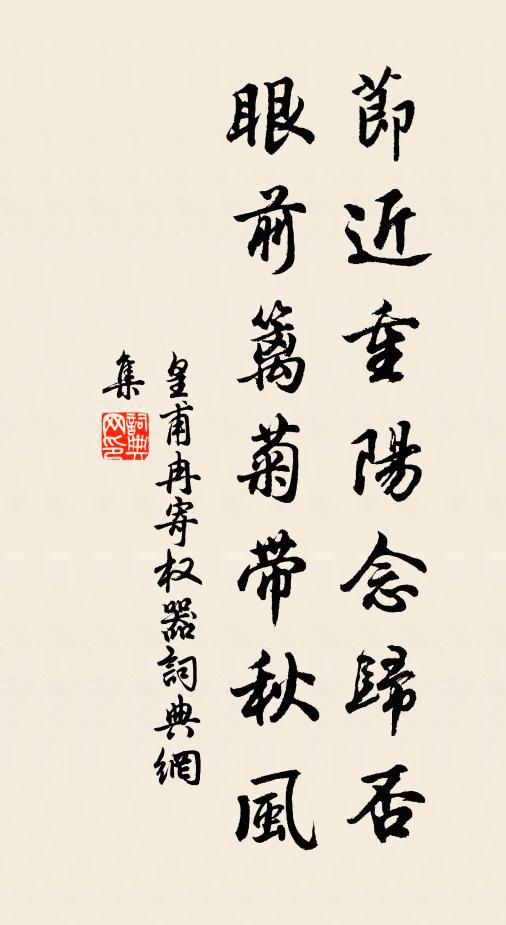 節近重陽念歸否
眼前籬菊帶秋風
皇甫冉寄权器詞典網
集
詞典
网印